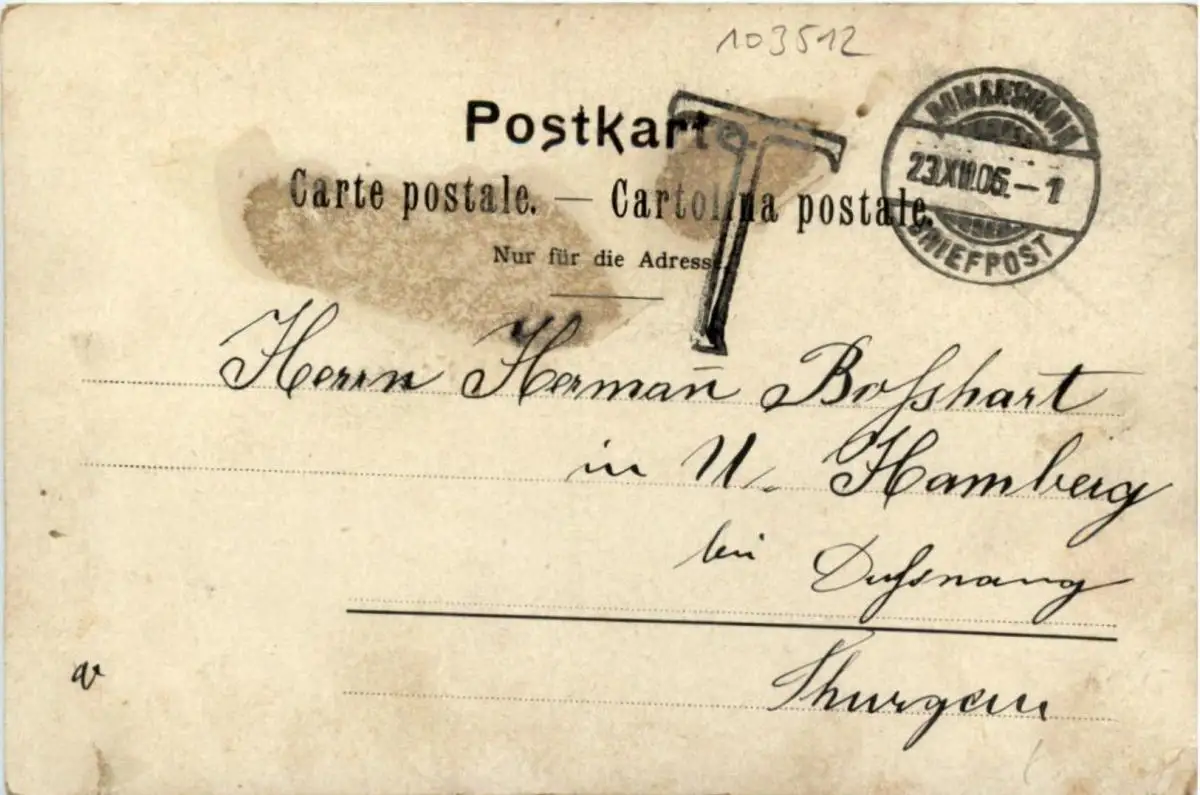 103512
Postkarte
T
Carte postale. — Cartolina postale.
Nur für die Adresse.
ROMANSHORN
23.XII.05.–1
BRIEFPOST
Herrn Herman̄ Boſshart
in U. Hamberg
bei Duſsnang
Thurgau